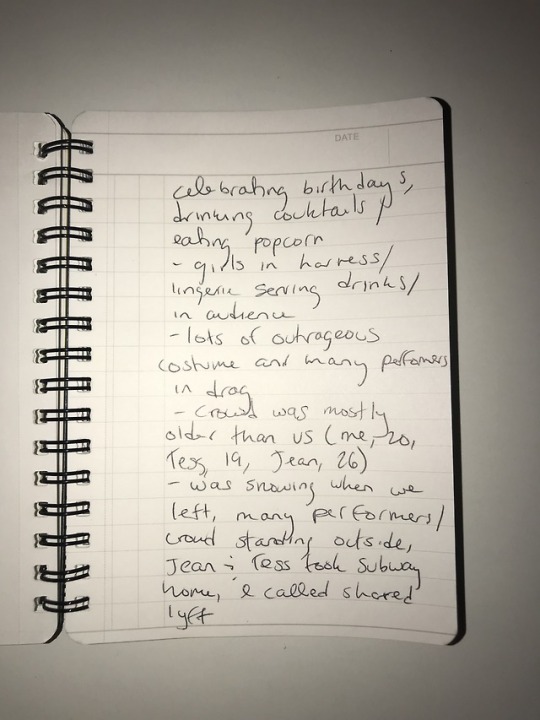 DATE
celebrating birthdays,
drinking cocktails /
eating popcorn
- girls in harness/
lingerie serving drinks/
in audience
- lots of outrageous
costume and many performers
in drag
- crowd was mostly
older than us (me, 20,
Tess, 19, Jean, 26)
- was snowing when we
left, many performers/
crowd standing outside,
Jean & Tess took subway
home, I called shared
lyft